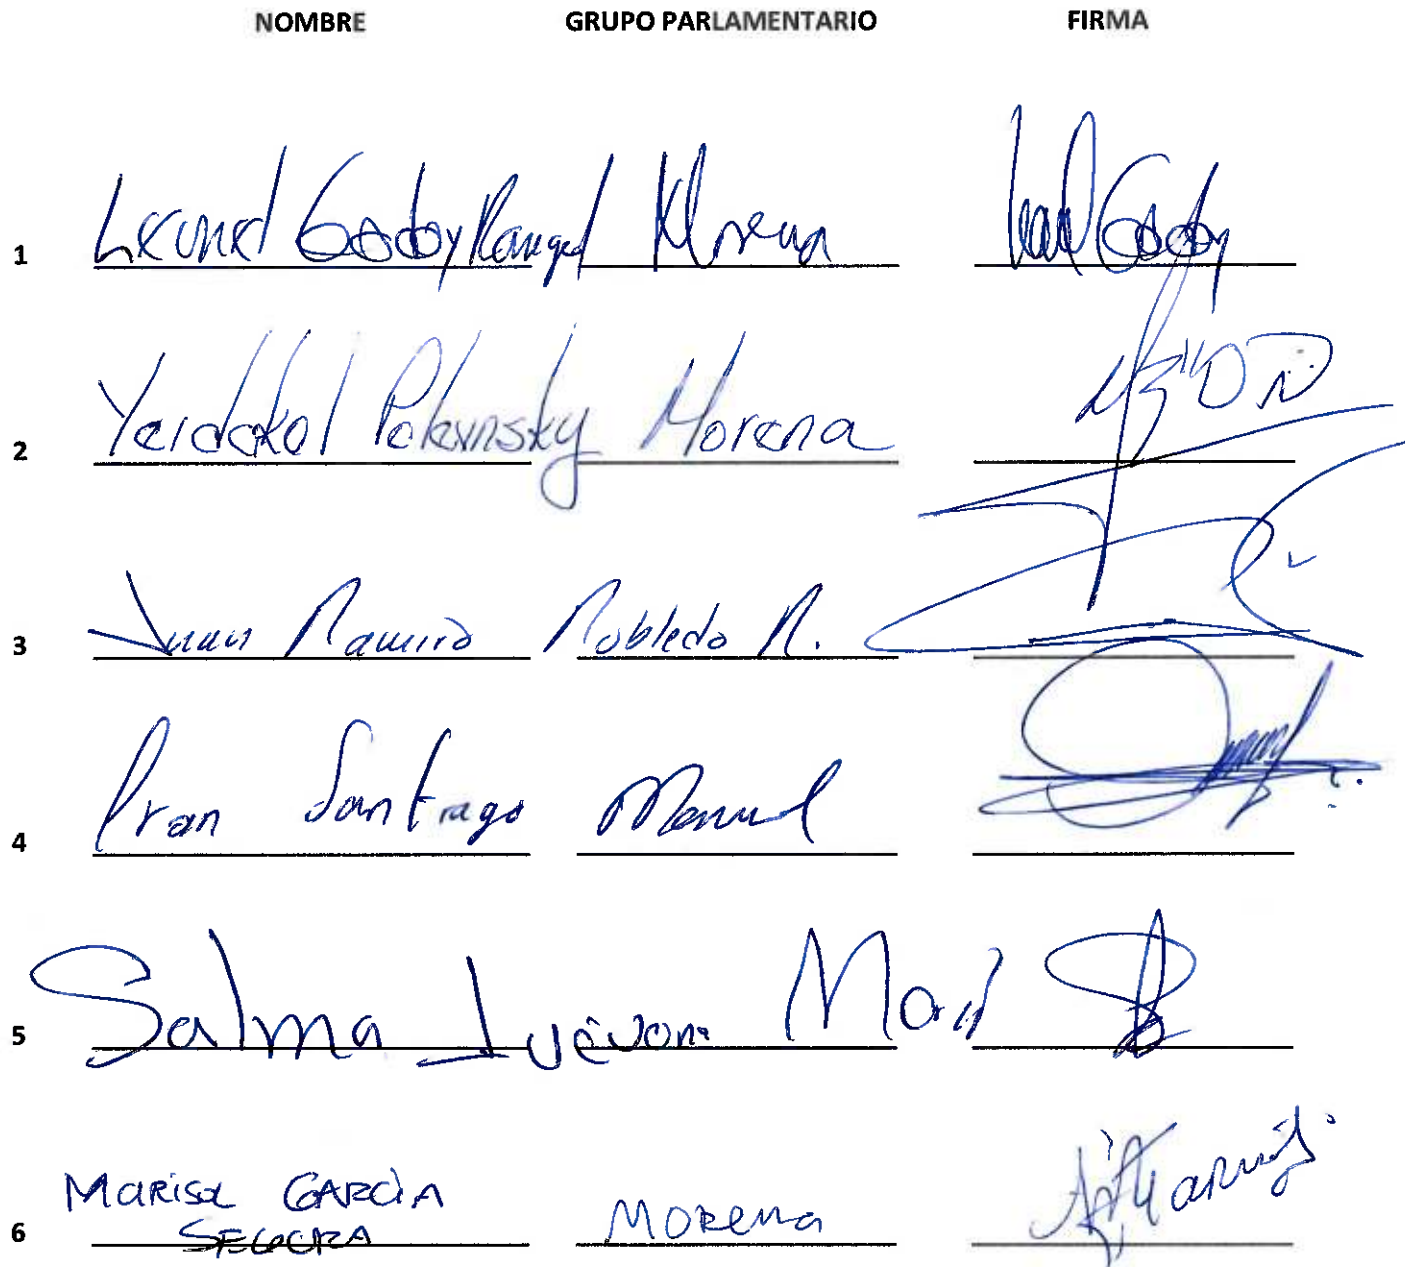 NOMBRE GRUPO PARLAMENTARIO FIRMA
1 Leonel Godoy Rangel Morena
2 Yeidckol Polevnsky Morena
3 Juan Ramiro Robledo R.
4 Iran Santiago Manuel
5 Salma Luévano
6 Marisol GARCÍA SEGURA Morena